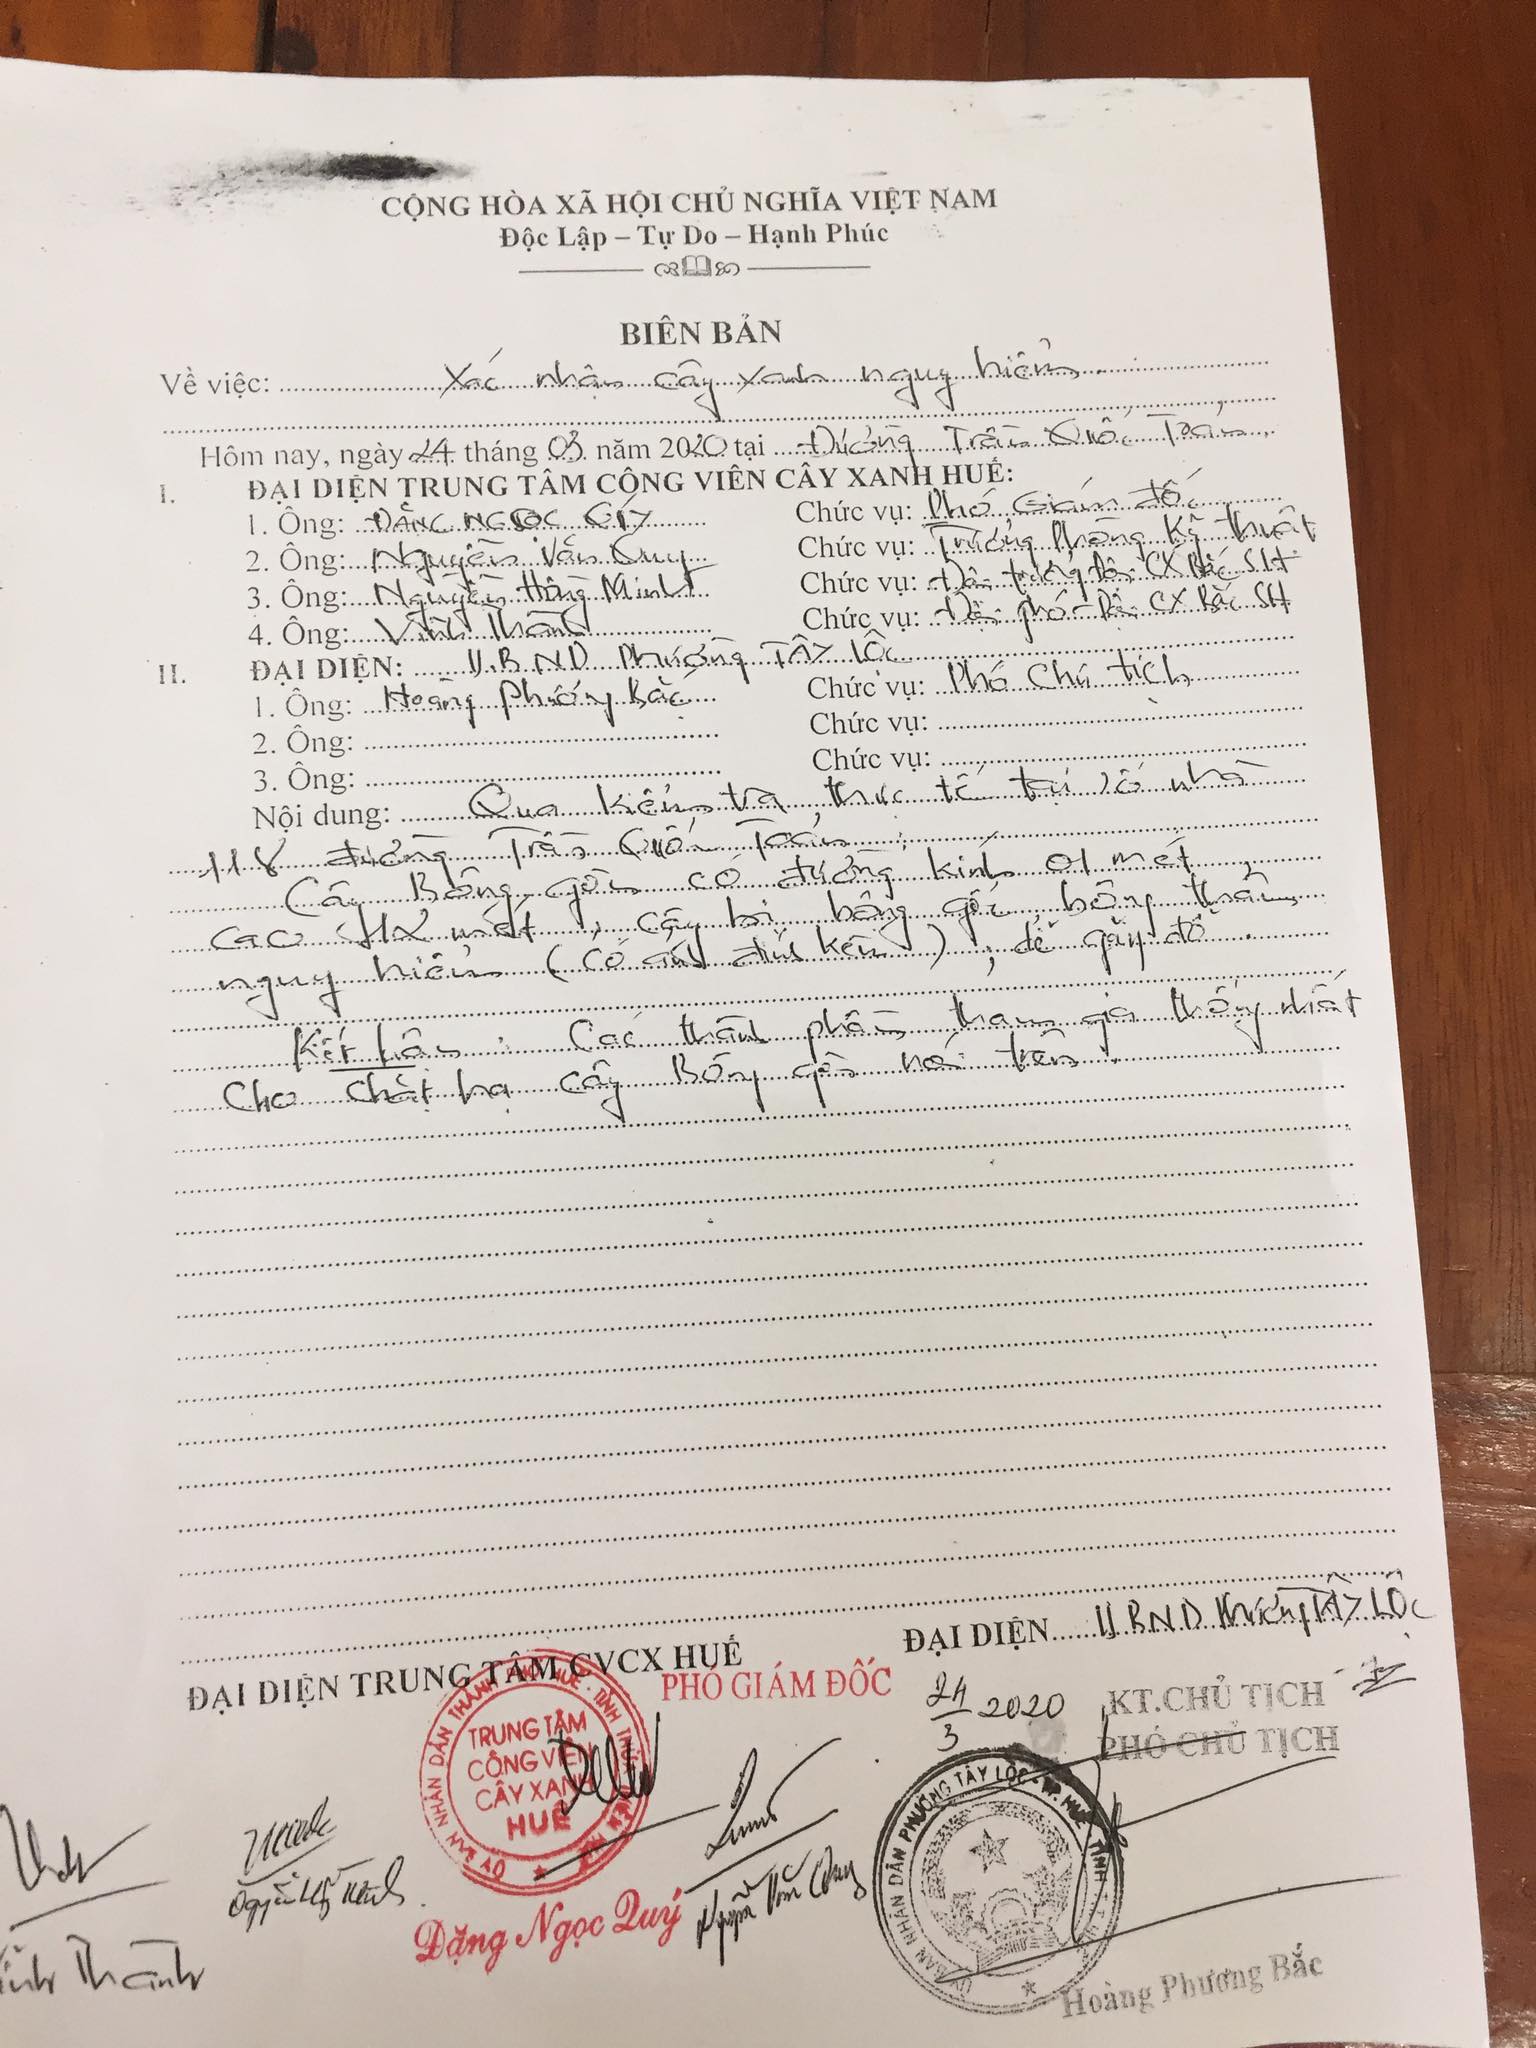 CỘNG HÒA XÃ HỘI CHỦ NGHĨA VIỆT NAM
Độc Lập – Tự Do – Hạnh Phúc
BIÊN BẢN
Về việc: Xác nhận cây xanh nguy hiểm.
Hôm nay, ngày 24 tháng 03 năm 2020 tại Đường Trần Quốc Toản
I. ĐẠI DIỆN TRUNG TÂM CÔNG VIÊN CÂY XANH HUẾ:
1. Ông: ĐẶNG NGỌC QÚY Chức vụ: Phó Giám đốc
2. Ông: Nguyễn Văn Chức vụ: Trưởng Phòng Kỹ thuật
3. Ông: Nguyễn Hồng Minh Chức vụ: Đội trưởng Đội CX Bắc SH
4. Ông: Vĩnh Thành Chức vụ: Đội phó Đội CX Bắc SH
II. ĐẠI DIỆN: U.B.N.D Phường TÂY LỘC
1. Ông: Hoàng Phương Bắc Chức vụ: Phó Chủ tịch
2. Ông: Chức vụ:
3. Ông: Chức vụ:
Nội dung: Qua kiểm tra thực tế tại số nhà
118 đường Trần Quốc Toản:
Cây Bông gòn có đường kính 01 mét,
cao 12 mét, cây bị hỏng gốc, bông thấm,
nguy hiểm ( ), dễ gãy đổ.
Kết luận: Các thành phần tham gia thống nhất
cho chặt hạ cây Bông gòn nói trên.
ĐẠI DIỆN TRUNG TÂM CVCX HUẾ
ĐẠI DIỆN U.B.N.D Phường TÂY LỘC
PHÓ GIÁM ĐỐC
24/3 2020
KT.CHỦ TỊCH
PHÓ CHỦ TỊCH
TRUNG TÂM
CÔNG VIÊN
CÂY XANH
HUẾ
ỦY BAN NHÂN DÂN PHƯỜNG TÂY LỘC - TP. HUẾ - TỈNH
Đặng Ngọc Quý
Hoàng Phương Bắc